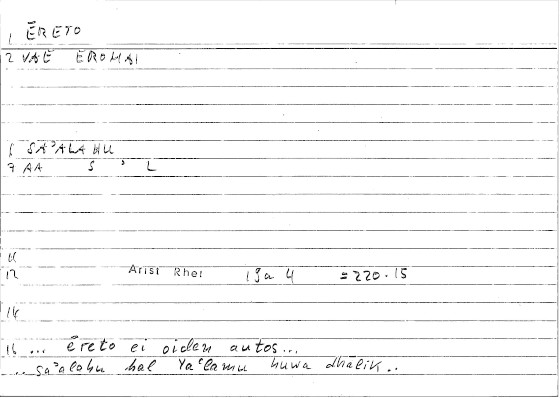 1 ĒRETO
2 VAE EROMAI
6 SAʾALAHU
7 AA S ʾ L
11
12 Arist Rhet 19a 4 = 220.15
14
15 ... ēreto ei oiden autos...
.. saʾalahu hal Yaʿlamu huwa dhālik..